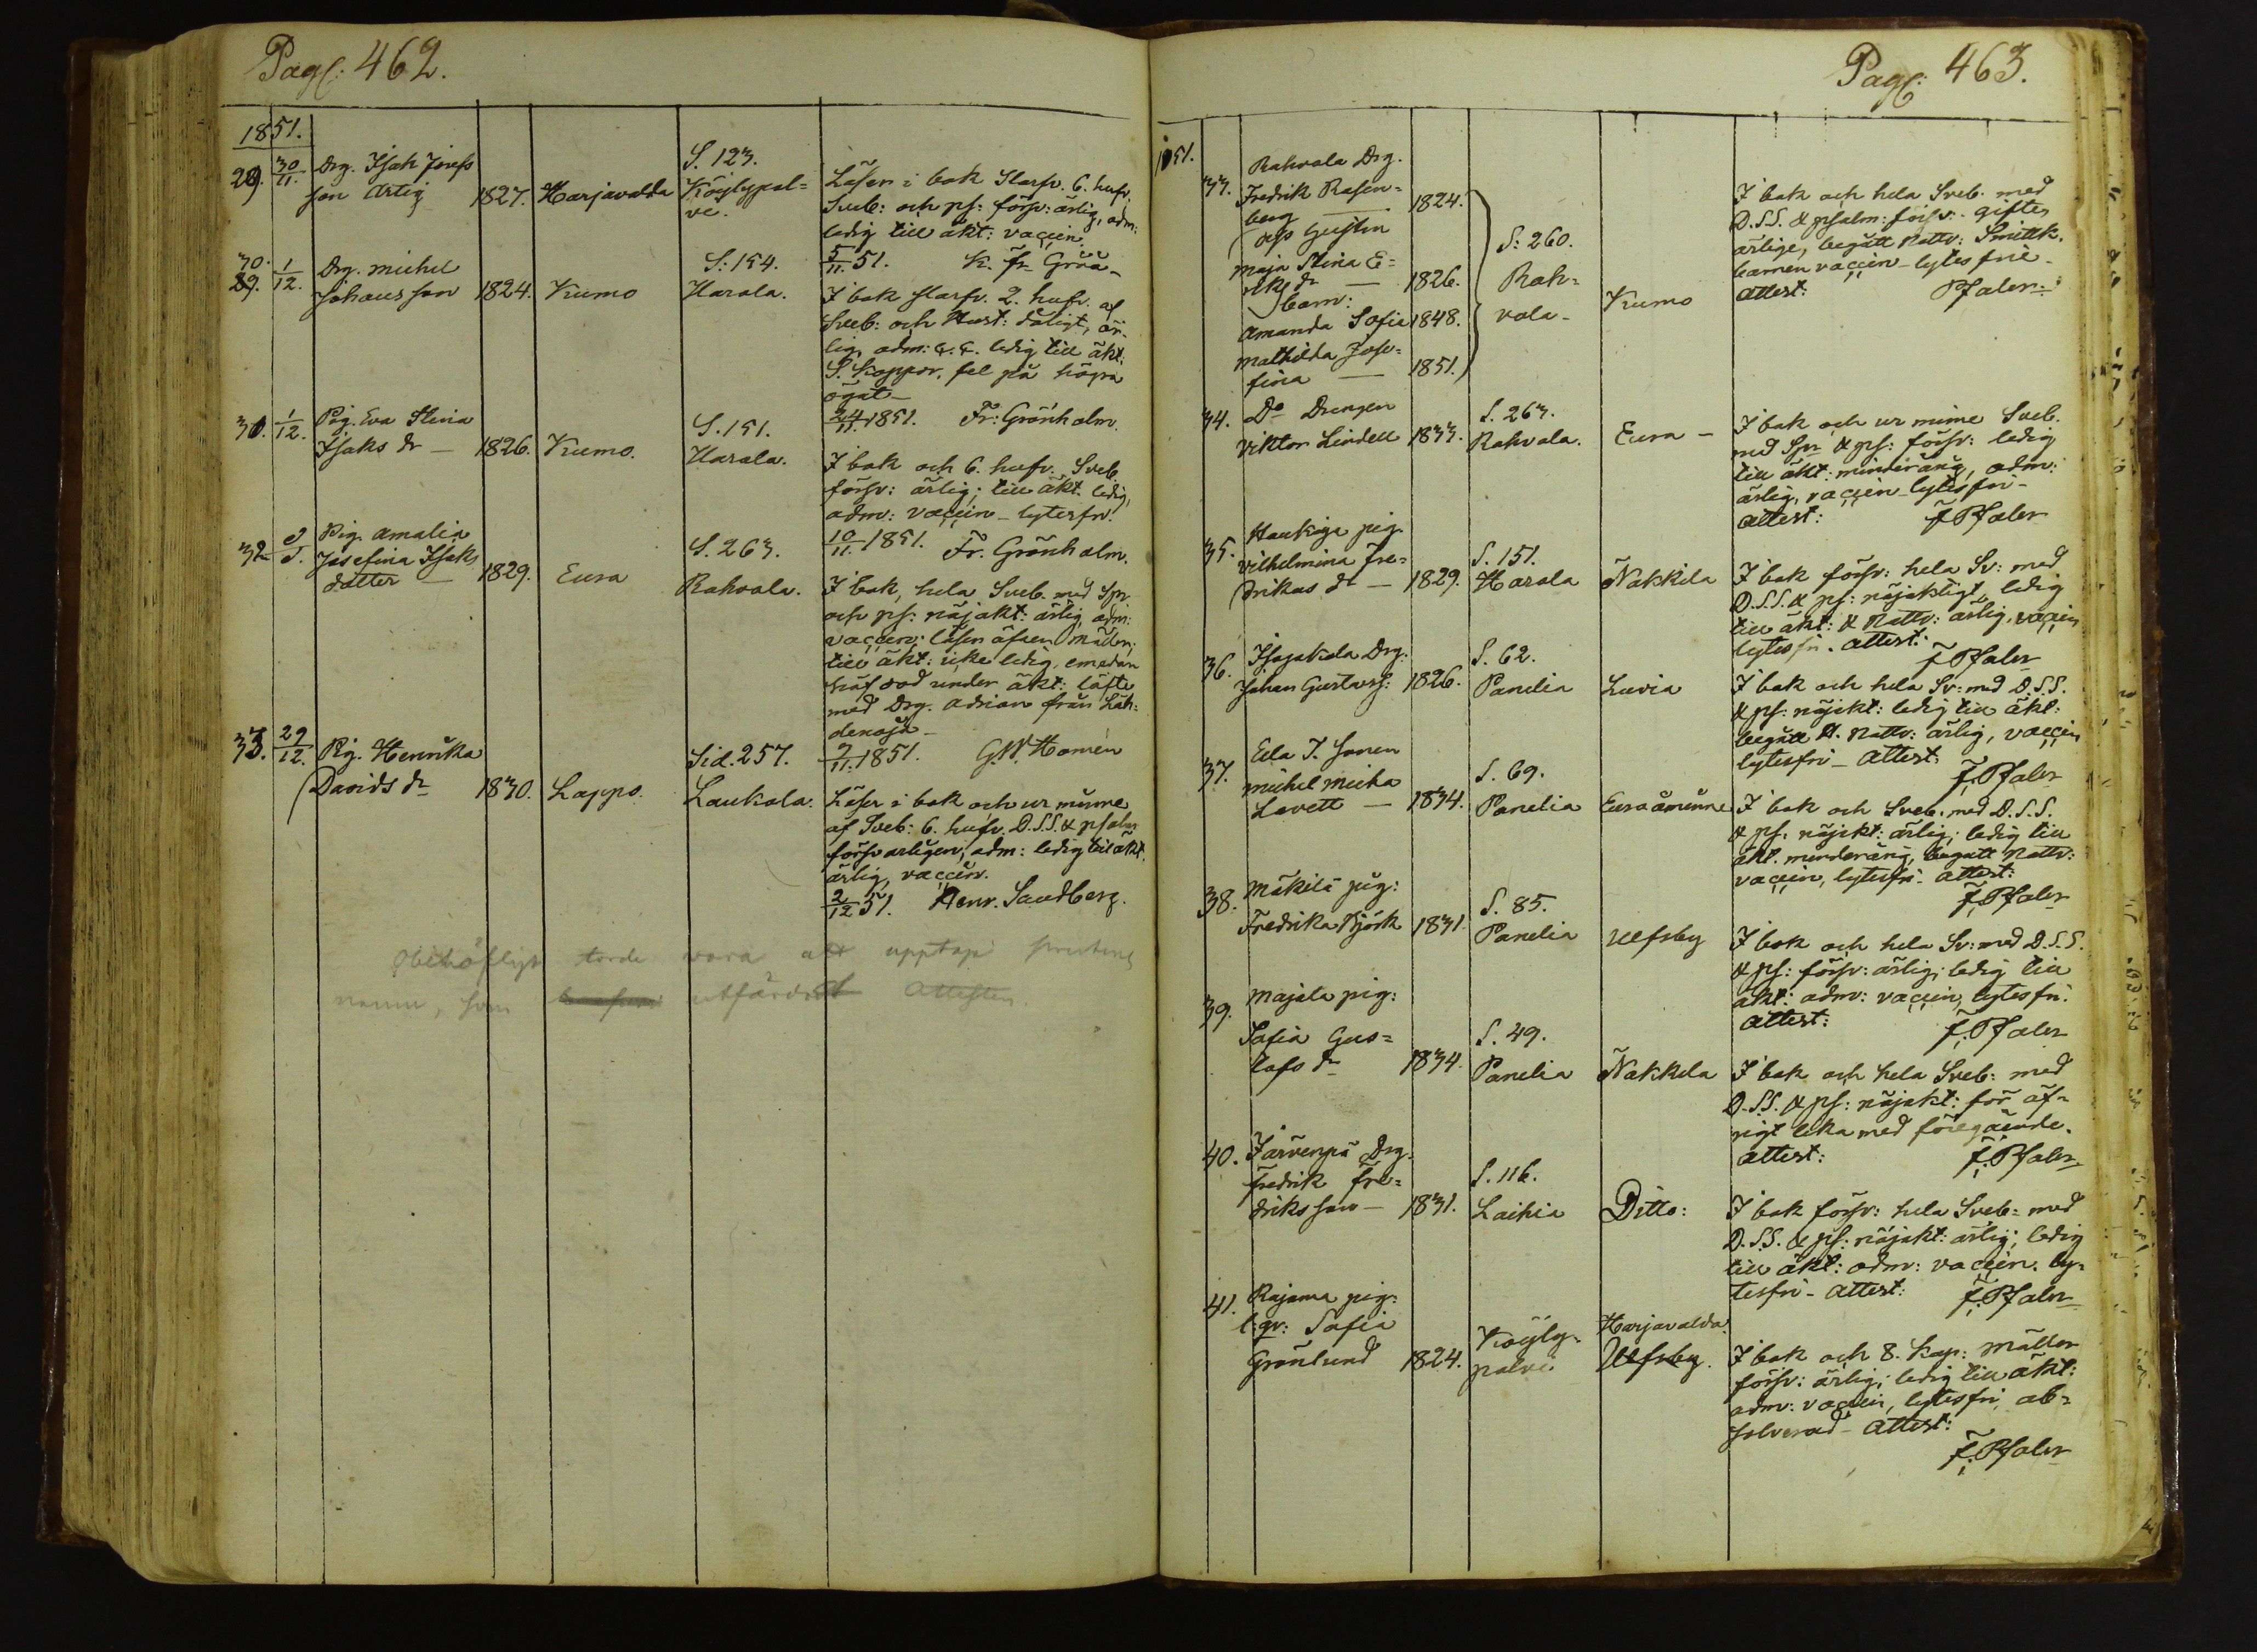 Pag: 462.
1851.
29. 30/11. Drg. Isak Josefs
son Artig 1827. Harjavalda S. 123. Köyliypol=
ve.
Läser i bok slarfv. 6. hufv.
Sveb: och ps: försv: ärlig, adm:
ledig till äkt: vaccin.
5/11. 51. K. Fr. Grön-
30. 29. 1/12. Drg. Michel
Johansson 1824. Kumo S. 154. Harola.
I bok slarfv. 2. hufv. af
Sveb: och Hust: dåligt, är-
lig, adm: ledig till äkt:
S. Koppor, fel på högra
ögat
24/11. 1851. Fr: Grönholm.
31. 1/12. Pig. Eva Stina
Isaks dr — 1826. Kumo. S. 151. Harola.
I bok och 6. hufv. Sveb.
försv: ärlig; till äkt. ledig,
adm: vaccin — lytesfri.
10/11. 1851. Fr. Grönholm.
32. Pig. Amalia
Josefina Isaks
dotter — 1829. Eura S. 263. Rahvola.
I bok, hela Sveb. med Spr
och ps: nöjakt: ärlig, adm:
vaccin; läser äfven
till äkt: icke ledig, emedan
under äkt: löfte
med Drg. Adrian från Läh-
denoja
7/11. 1851. G.W. Homén
33. 29/12. Pig. Henrika
Davids dr 1830. Lappo. Sid. 257. Laukola.
Läser i bok och ur minne
af Sveb: 6. hufv. D.S.S. & psalm
försvarligen; adm: ledig till äkt.
ärlig, vaccin.
2/12 51. Henr. Sandberg.
Obehöfligt torde vara att upptaga
namn, som utfärdat attesten.
Pag: 463.
1851.
33. Rahvola Drg.
Fredrik Rosen=
berg — 1824.
Maja Stina E=
riks dr — 1826.
barn:
Amanda Sofia 1848.
Mathilda Jose=
fina — 1851.
S: 260.
Rah=
vola- Kumo
I bok och hela Sveb. med
D.S.S. & psalm: försv: giftes
ärlige, begått Nattv: Smittk.
barnen vaccin — lytesfrie —
Attest: Pfaler
34. Do Drengen
Viktor Lindell 1833. S. 263. Rahvola. Eura —
I bok och ur minne Sveb.
med Spr & ps: försv: ledig
till äkt: minderårig, adm:
ärlig, vaccin — lytesfri —
Attest: F. Pfaler
35. Haukiga pig.
Vilhelmina Fre=
drikas dr — 1829. S. 151. Harola Nakkila
I bok försv: hela Sv: med
D.S.S. & ps: nöjaktigt, ledig
till äkt: & Nattv: ärlig, vaccin
lytesfri. Attest: F. Pfaler
36. Isojakola Drg.
Johan Gustafs: 1826. S. 62. Panelia Luvia
I bok och hela Sv: med D.S.S.
& ps: nöjakt: ledig till äkt:
begått H. Nattv: ärlig, vaccin
lytesfri — Attest: F. Pfaler
37. Eela T. Sonen
Michel Micha
Lovett — 1834. S. 69. Panelia Euraåminne
I bok och Sveb. med D.S.S.
& ps. nöjakt: ärlig; ledig till
äkt. minderårig, begått Nattv:
vaccin, lytesfri. Attest:
F. Pfaler
38. Mäkilä pig:
Fredrika Björk 1831 S. 85. Panelia Ulfsby
I bok och hela Sv: med D.S.S.
& ps: försv: ärlig; ledig till
äkt: adm: vaccin, lytesfri.
Attest: F. Pfaler
39. Majala pig:
Sofia Gus=
tafs dr 1834. S. 49. Panelia Nakkila
I bok och hela Sveb: med
D.S.S. & ps: nöjakt: för öf=
rigt lika med föregående.
Attest: F. Pfaler
40. Järvenpä Drg.
Fredrik Fre=
driksson — 1831. S. 116. Laihia Ditto:
I bok försv: hela Sveb= med
D.S.S. & ps: nöjakt: ärlig; ledig
till äkt: adm: vaccin. ly=
tesfri — Attest: F. Pfaler
41. Rajama pig:
Sofia
Grönlund 1824. Köyly=
polvi Harjavalda.
Ulfsby.
I bok och 8. Kap: måtter
försv: ärlig; ledig till äkt:
adm: vaccin, lytesfri ab=
solverad — Attest:
F. Pfaler